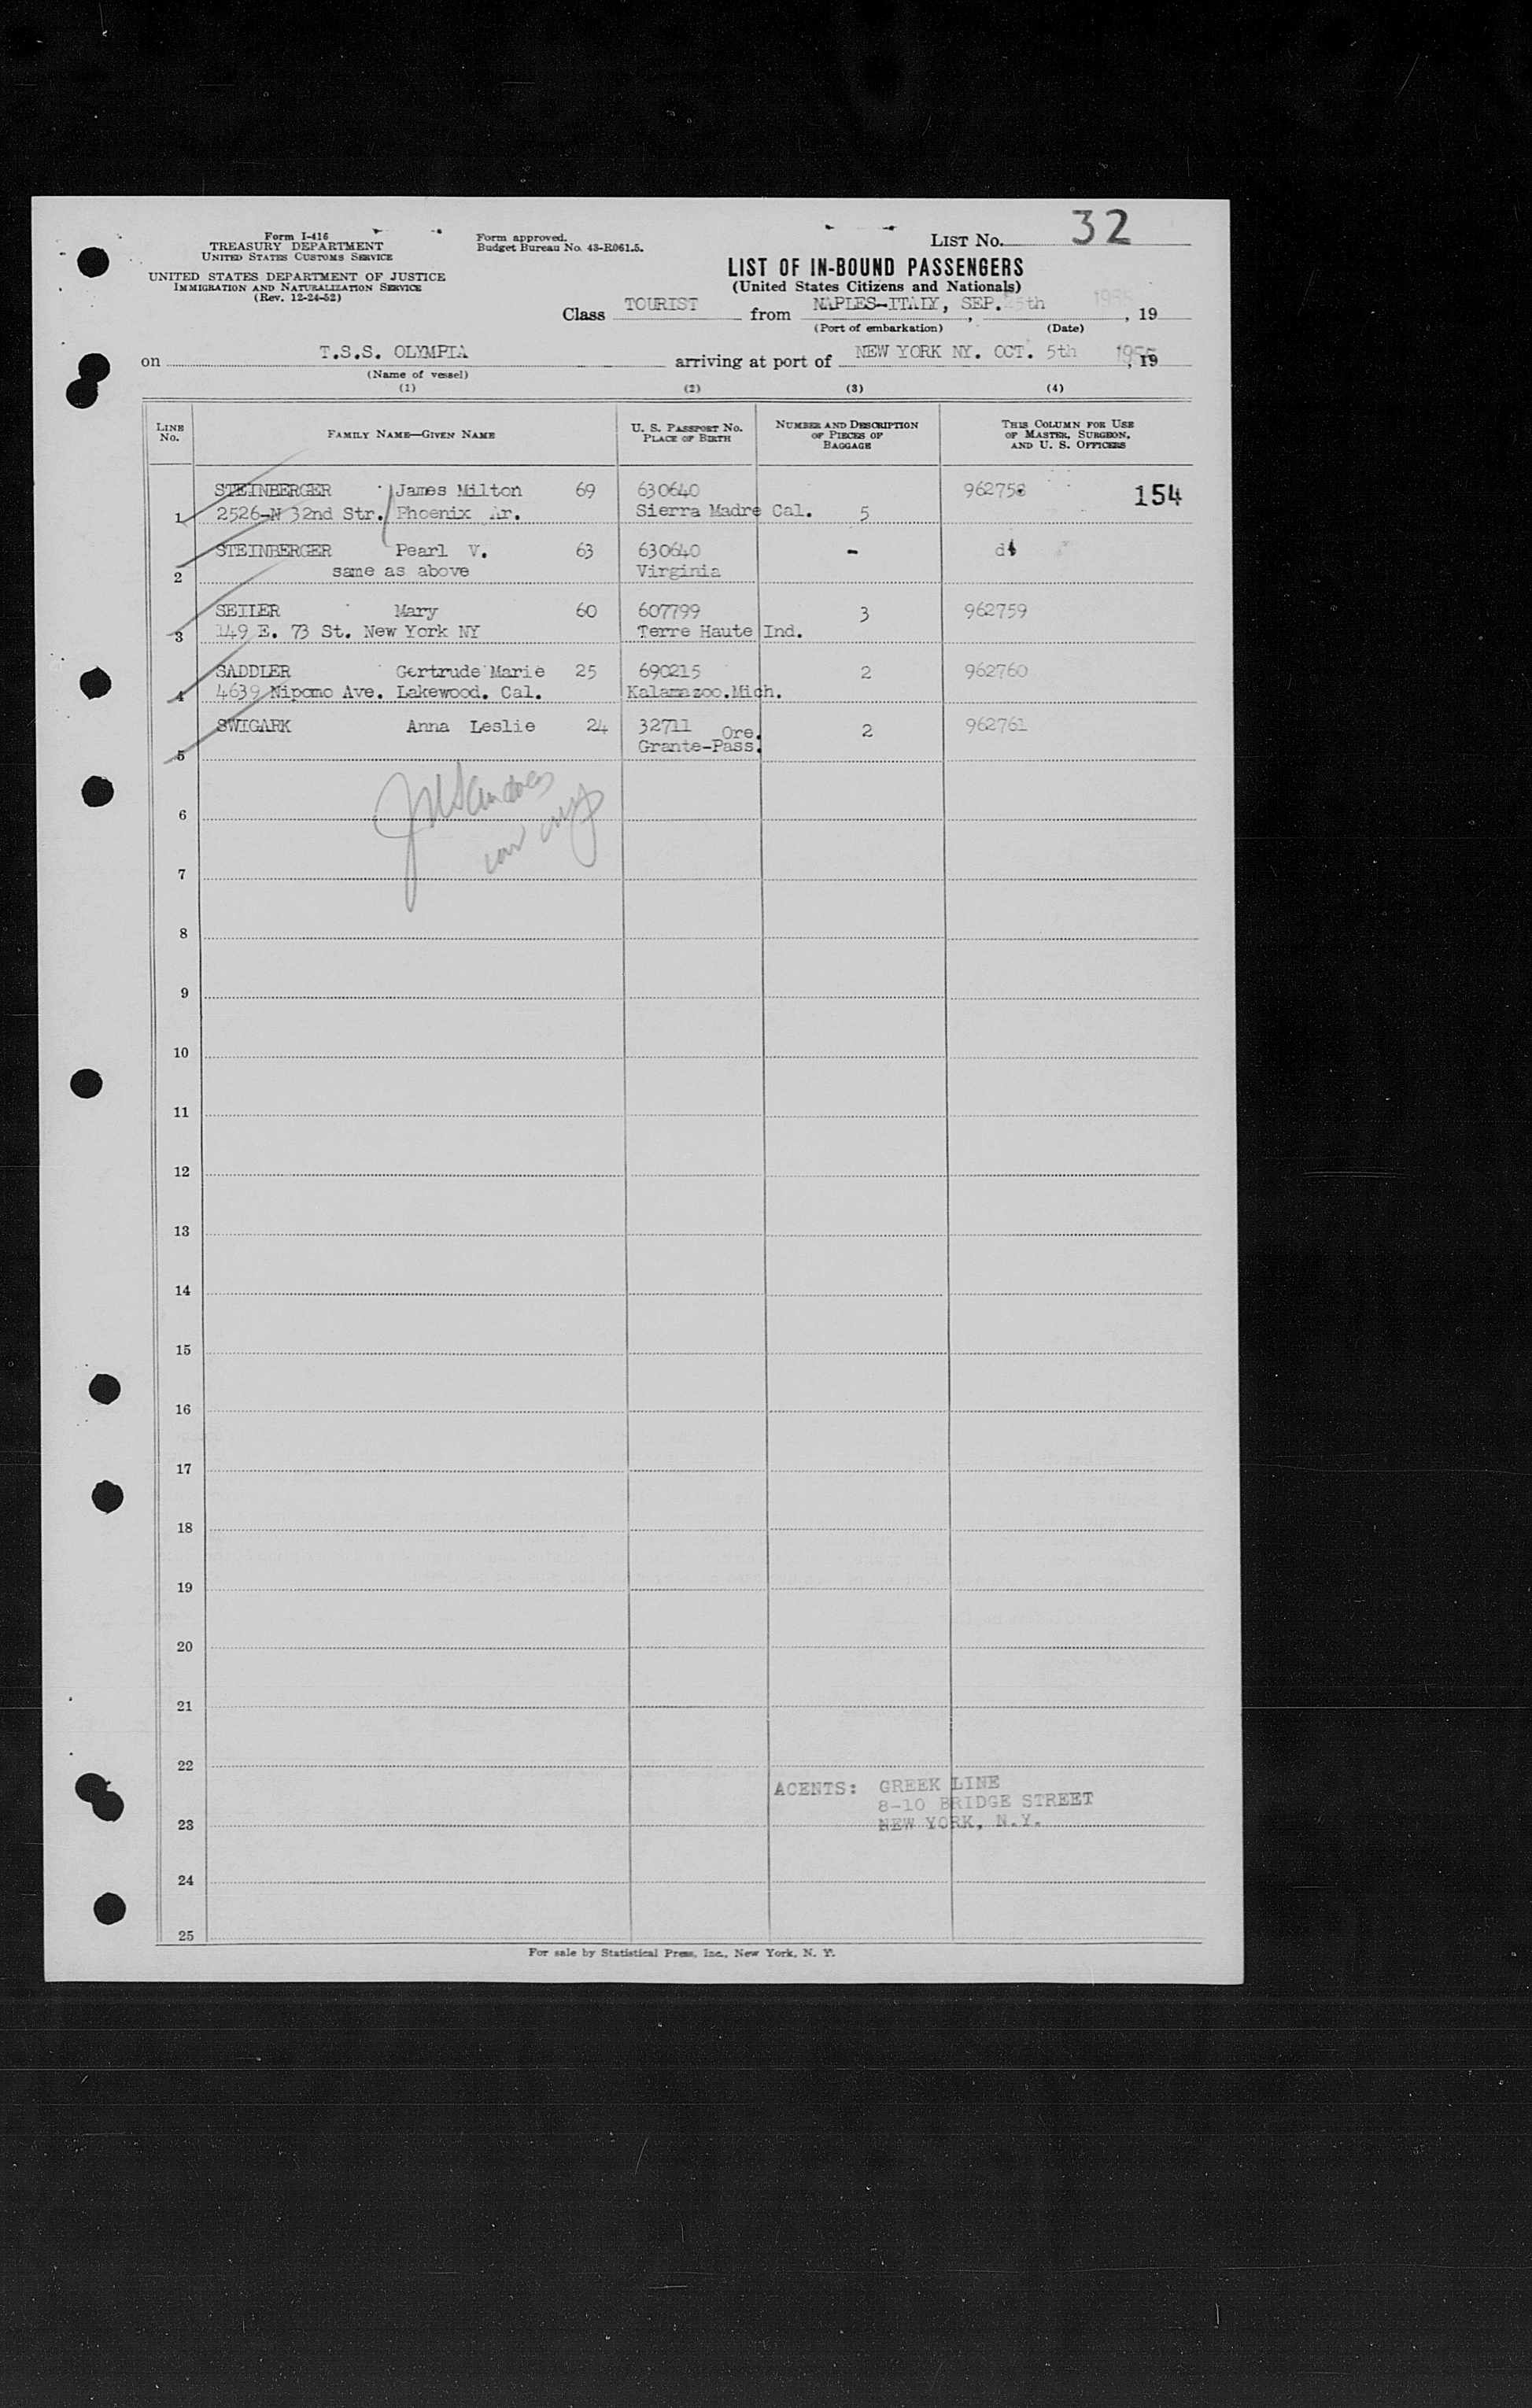 Form I-416
TREASURY DEPARTMENT
UNITED STATES CUSTOMS SERVICE
UNITED STATES DEPARTMENT OF JUSTICE
IMMIGRATION AND NATURALIZATION SERVICE
(Rev. 12-24-52)
Form approved.
Budget Bureau No. 43-R061.5.
LIST No. 32
LIST OF IN-BOUND PASSENGERS
(United States Citizens and Nationals)
Class TOURIST from NAPLES-ITALY, SEP. 5th 1955, 19
(Port of embarkation) (Date)
on T.S.S. OLYMPIA arriving at port of NEW YORK NY. OCT. 5th 1955, 19
(Name of vessel)
(1) (2) (3) (4)
LINE No. FAMILY NAME—GIVEN NAME U. S. PASSPORT No. PLACE OF BIRTH NUMBER AND DESCRIPTION OF PIECES OF BAGGAGE THIS COLUMN FOR USE OF MASTER, SURGEON, AND U. S. OFFICERS
STEINBERGER James Milton 69 630640 962758 154
1 2526-N 32nd Str. Phoenix Ar. Sierra Madre Cal. 5
STEINBERGER Pearl V. 63 630640 -
2 same as above Virginia
SEILER Mary 60 607799 3 962759
3 149 E. 73 St. New York NY Terre Haute Ind.
SADDLER Gertrude Marie 25 690215 2 962760
4 4639 Nipomo Ave. Lakewood. Cal. Kalamazoo.Mich.
SWIGARK Anna Leslie 24 32711 Ore. 2 962761
5 Grante-Pass.
6
7
8
9
10
11
12
13
14
15
16
17
18
19
20
21
22
ACENTS: GREEK LINE
8-10 BRIDGE STREET
23 NEW YORK, N.Y.
24
25
For sale by Statistical Press, Inc., New York, N. Y.